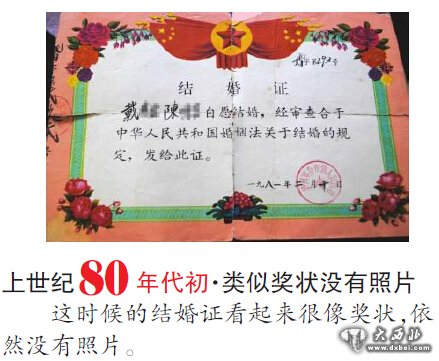 结婚证
戴 陳 自愿结婚，经审查合于
中华人民共和国婚姻法关于结婚的规
定，发给此证。
一九八一年 月 日
上世纪80年代初·类似奖状没有照片
这时候的结婚证看起来很像奖状,依
然没有照片。
大西北
www.dxbei.com